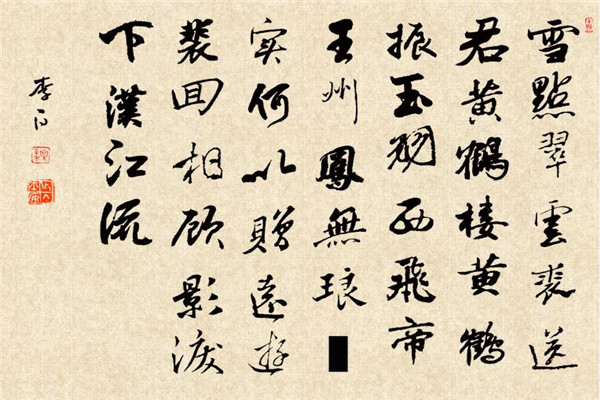 雪點翠雲裘送
君黄鶴楼黄鶴
振玉羽西飛帝
王州鳳無琅
实何以贈遠遊
裴回相顧影淚
下漢江流
李白